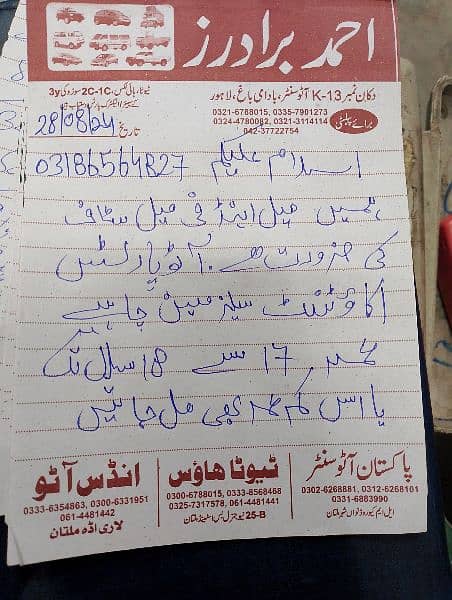 احمد برادرز
دکان نمبر K-13 آٹوسنٹر، بادامی باغ، لاہور
0321-6788015, 0335-7901273
0324-4780082, 0321-3114114
042-37722754
برائے پبلسٹی
ٹیوٹا، ہائی لکس، 2C-1C، سوزوکی 3y
تاریخ 28/08/24
اسلام علیکم 03186564827
ہمیں میل اینڈ فی میل سٹاف
کی ضرورت ہے. آٹو پارٹس
اکاؤنٹنٹ سیلز مین چاہیے
عمر 17 سے 18 سال تک
یا اس کم عمر بھی مل جائیں
پاکستان آٹوسنٹر
0302-6268881, 0312-6268101
0331-6883990
ایل ایم کیو روڈ نواں شہر ملتان
ٹیوٹا ہاؤس
0300-6788015, 0333-8568468
0325-7317578, 061-4481441
25-B نیو جنرل بس اسٹینڈ ملتان
انڈس آٹو
0333-6354863, 0300-6331951
061-4481442
لاری اڈہ ملتان